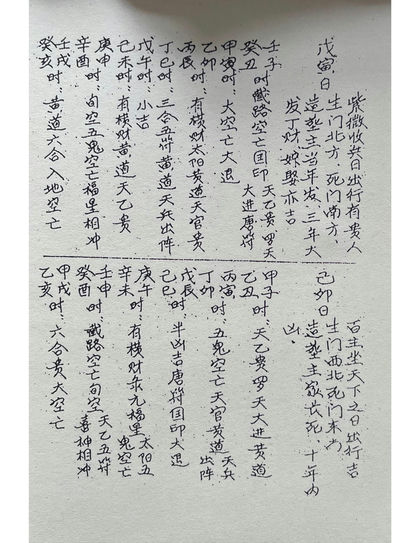 戊寅日
紫微收煞日出行有贵人
生门北方,死门南方,
造葬主当年发,三年大
发丁财,嫁娶亦吉
壬子时:截路空亡国印
癸丑 天乙贵罗天大进唐符
甲寅时:大空亡大退
乙卯
丙辰时:有横财太阳黄道天官贵
丁巳时:三合五符黄道天兵出阵
戊午时:小吉
己未时:有横财黄道天乙贵
庚申
辛酉时:旬空五鬼空亡福星相冲
壬戌时:
癸亥时:黄道六合入地空亡
己卯日
百主坐天下之日出行吉
生门西北死门东南
造葬主家长死、十年内
凶。
甲子时:天乙贵罗天大进黄道
乙丑
丙寅时:五鬼空亡天官黄道天兵出阵
丁卯
戊辰时:半凶吉唐符国印大退
己巳
庚午时:有横财 福星太阳五鬼空亡
辛未
壬申时:截路空亡旬空天乙五符
癸酉 喜神相冲
甲戌时:六合贵大空亡
乙亥